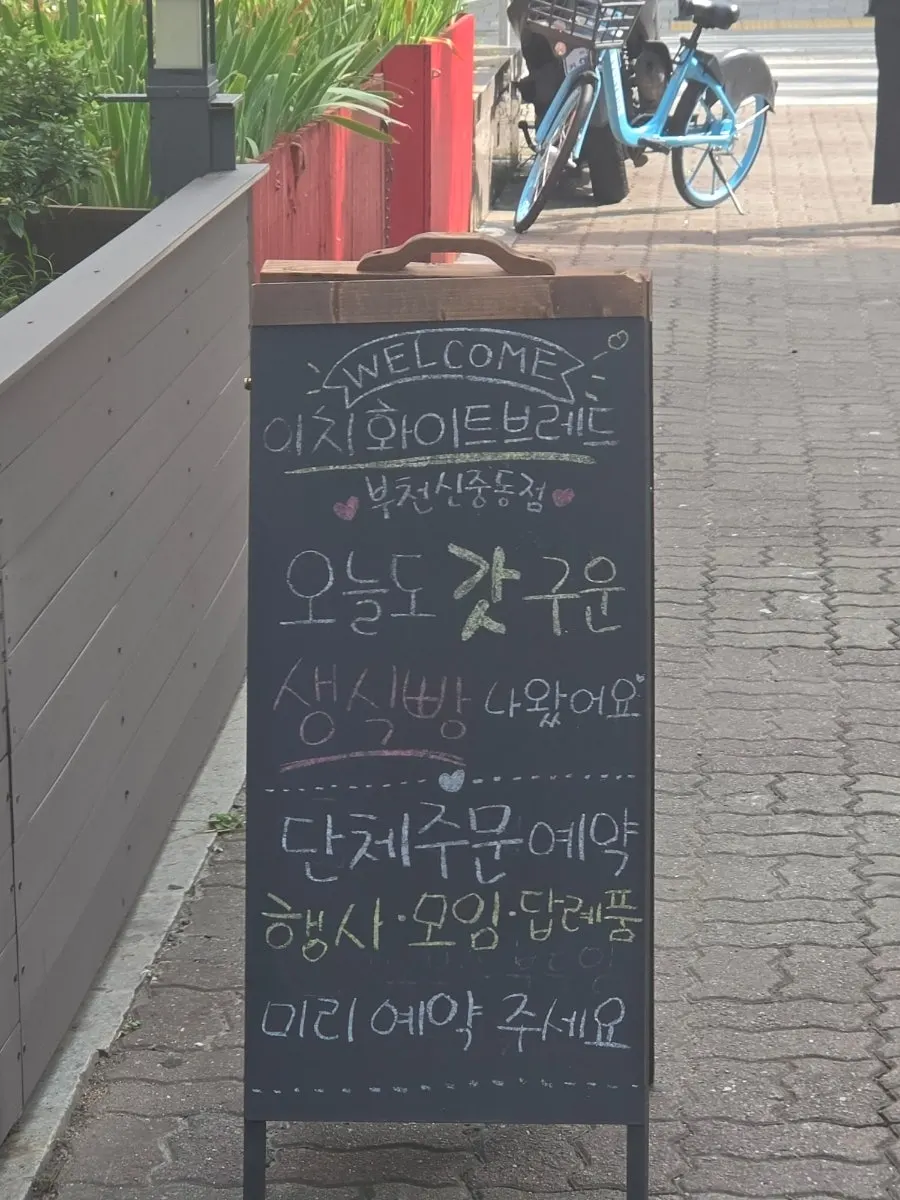 WELCOME
이치화이트브레드
부천신중동점
오늘도 갓 구운
생식빵 나왔어요
단체주문예약
행사·모임·답례품
미리 예약 주세요